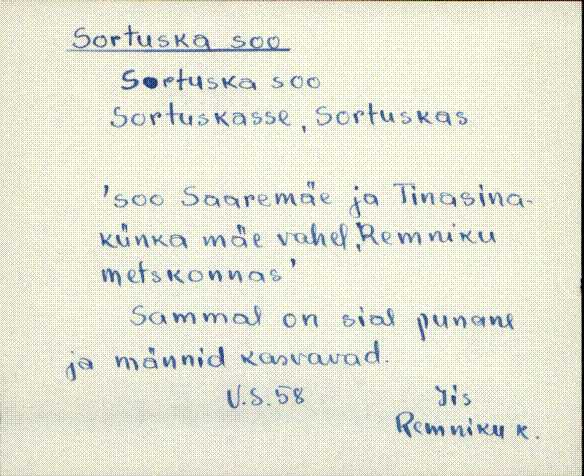 Sortuska soo
Sortuska soo
Sortuskasse, Sortuskas
'soo Saaremäe ja Tinasina-
künka mäe vahel, Remniku
metskonnas'
Sammal on sial punane
ja männid kasvavad.
V.S.58 Jis
Remniku k.